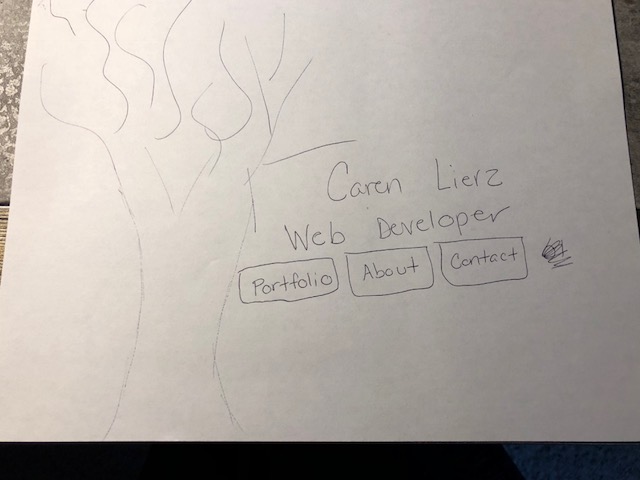 Caren Lierz
Web Developer
Portfolio About Contact